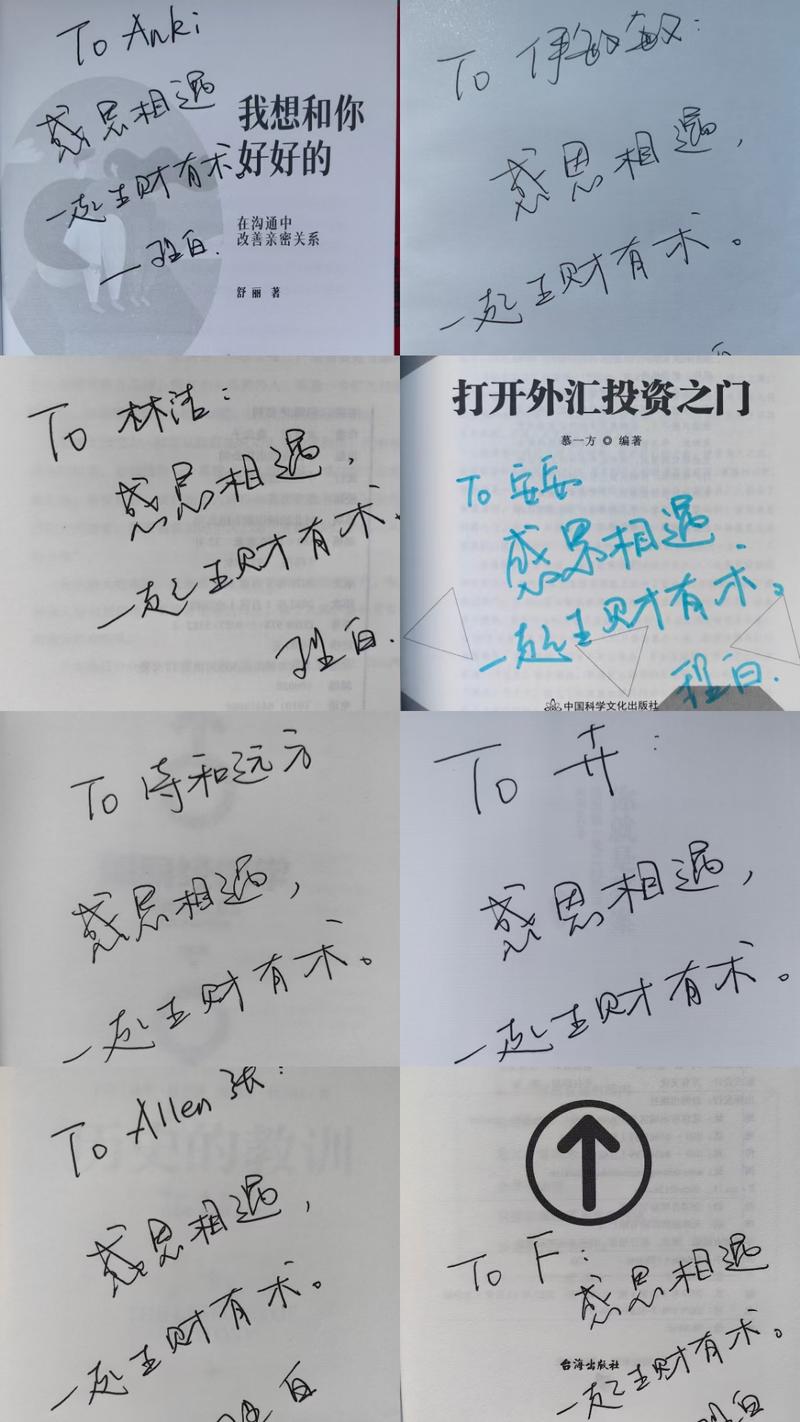 To Anki
感恩相遇
一起生财有术。
我想和你
好好的
在沟通中
改善亲密关系
舒丽 著
To 伊敏敏：
感恩相遇，
一起生财有术。
To 林洁：
感恩相遇，
一起生财有术。
打开外汇投资之门
慕一方 编著
To 安安
感恩相遇
一起生财有术。
中国科学文化出版社
To 诗和远方
感恩相遇，
一起生财有术。
To 卉：
感恩相遇，
一起生财有术。
历史的教训
To Allen 张：
感恩相遇，
一起生财有术。
To F：
感恩相遇
一起生财有术。
台海出版社